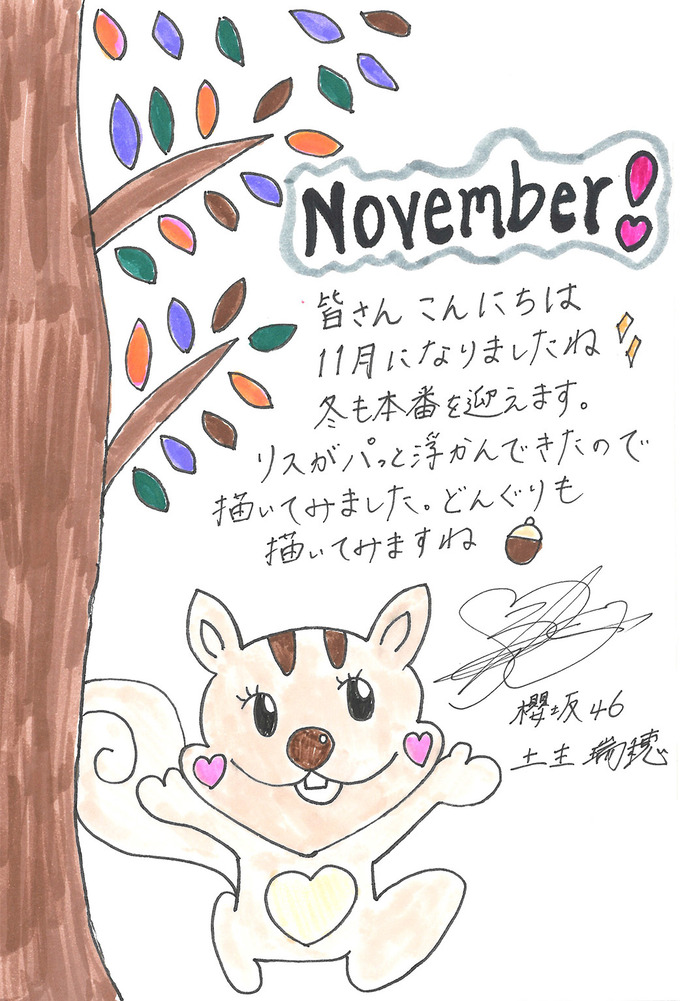 November!
皆さん こんにちは
11月になりましたね
冬も本番を迎えます。
リスがパっと浮かんできたので
描いてみました。どんぐりも
描いてみますね
櫻坂46
土生 瑞穂